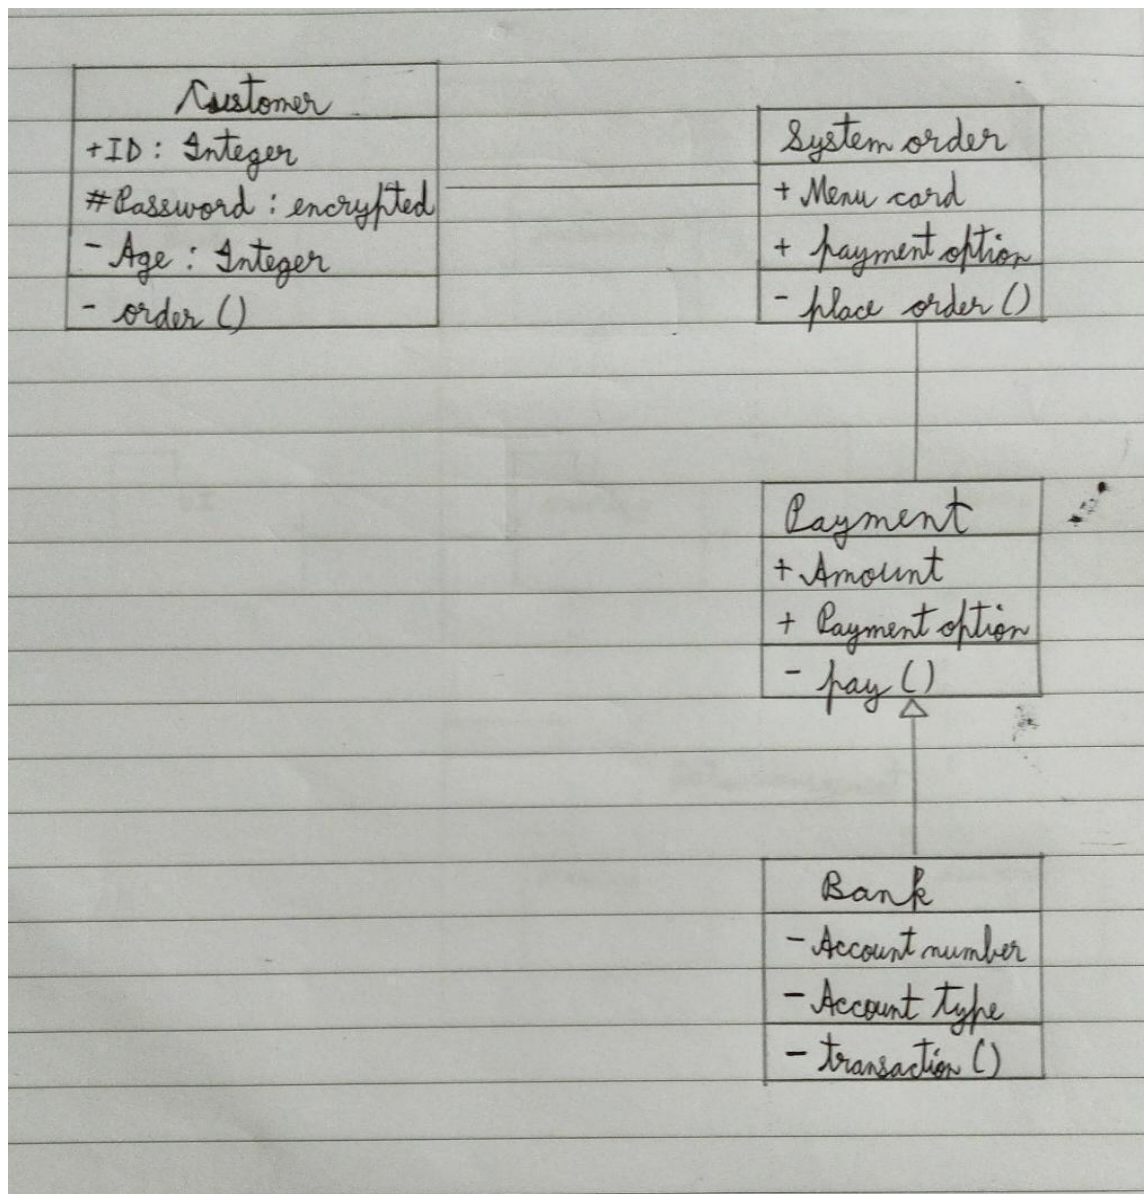 Customer
+ID : Integer
#Password : encrypted
- Age : Integer
- order ()
System order
+ Menu card
+ payment option
- place order ()
Payment
+ Amount
+ Payment option
- pay ()
Bank
- Account number
- Account type
- transaction ()